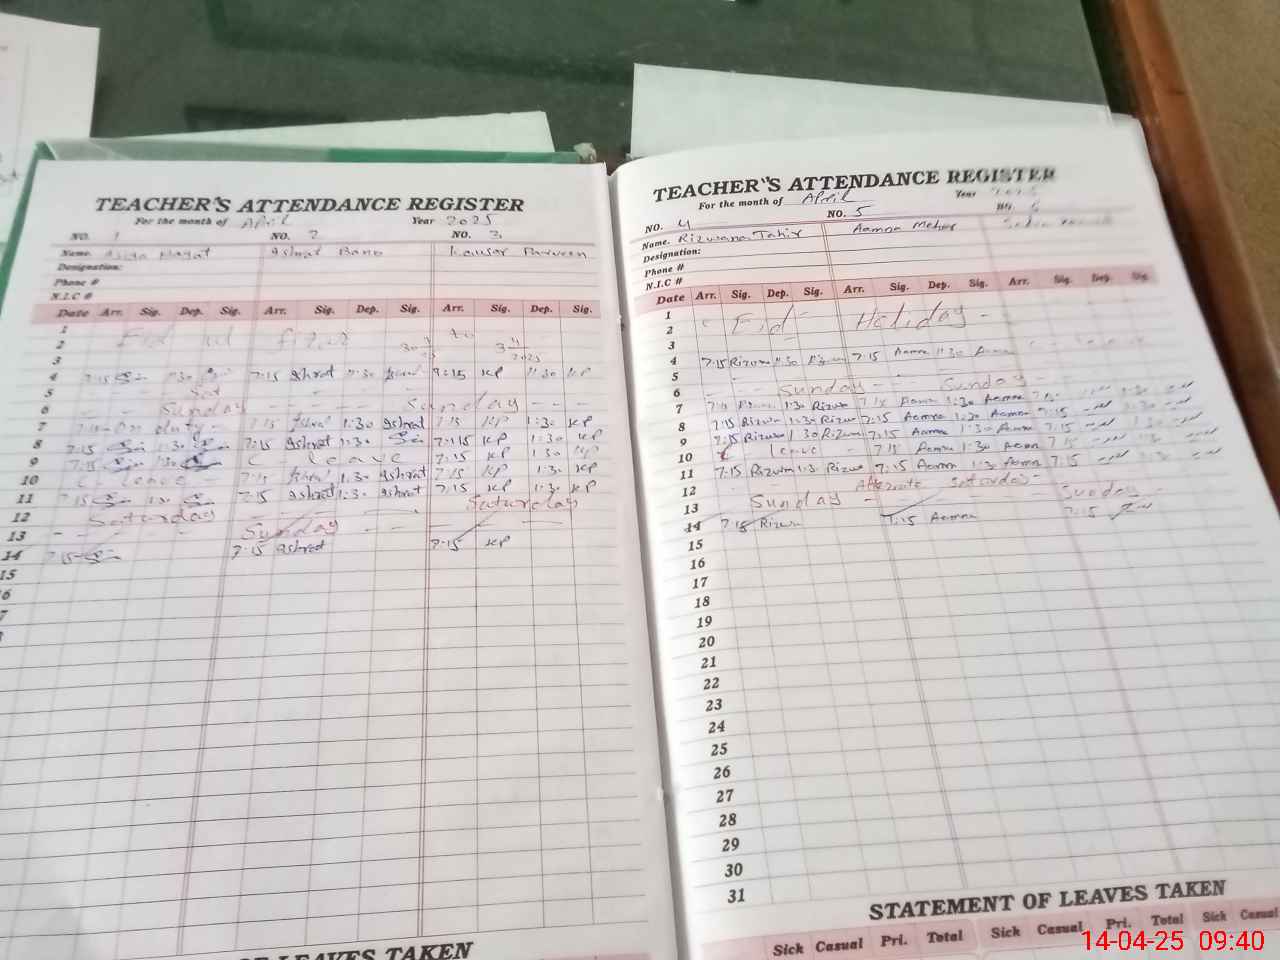 TEACHER'S ATTENDANCE REGISTER
For the month of April Year 2025
NO. 1 NO. 2 NO. 3
Name. Hayat Ishrat Bano Kausar Parveen
Designation:
Phone #
N.I.C #
Date Arr. Sig. Dep. Sig. Arr. Sig. Dep. Sig. Arr. Sig. Dep. Sig.
1
2 Eid ul fitar to
3
4 7:15 1:30 7:15 Ishrat 11:30 Ishrat 7:15 KP 11:30 KP
5 Sat
6 Sunday Sunday
7 7:15 On duty 7:15 Ishrat 1:30 Ishrat 7:15 KP 1:30 KP
8 7:15 1:30 7:15 Ishrat 1:30 7:15 KP 1:30 KP
9 7:15 1:30 leave 7:15 KP 1:30 KP
10 leave 7:15 Ishrat 1:30 Ishrat 7:15 KP 1:30 KP
11 7:15 1:30 7:15 Ishrat 1:30 Ishrat 7:15 KP 1:30 KP
12 Saturday Saturday
13 Sunday
14 7:15 7:15 Ishrat 7:15 KP
15
16
17
18
LEAVES TAKEN
TEACHER'S ATTENDANCE REGISTER
For the month of April Year 2025
NO. 4 NO. 5 NO. 6
Name. Rizwana Tahir Aamna Meher
Designation:
Phone #
N.I.C #
Date Arr. Sig. Dep. Sig. Arr. Sig. Dep. Sig. Arr. Sig. Dep. Sig.
1
2 Eid Holiday
3
4 7:15 Rizwan 11:30 Rizwan 7:15 Aamna 11:30 Aamna
5
6 Sunday Sunday
7 7:15 Rizwan 1:30 Rizwan 7:15 Aamna 1:30 Aamna 7:15 1:30
8 7:15 Rizwan 1:30 Rizwan 7:15 Aamna 1:30 Aamna 7:15 1:30
9 7:15 Rizwan 1:30 Rizwan 7:15 Aamna 1:30 Aamna 7:15 1:30
10 leave 7:15 Aamna 1:30 Aamna 7:15
11 7:15 Rizwan 1:30 Rizwan 7:15 Aamna 1:30 Aamna 7:15
12 Alternate Saturday
13 Sunday Sunday
14 7:15 Rizwan 7:15 Aamna 7:15
15
16
17
18
19
20
21
22
23
24
25
26
27
28
29
30
31
STATEMENT OF LEAVES TAKEN
Sick Casual Pri. Total Sick Casual Pri. Total Sick Casual
14-04-25 09:40